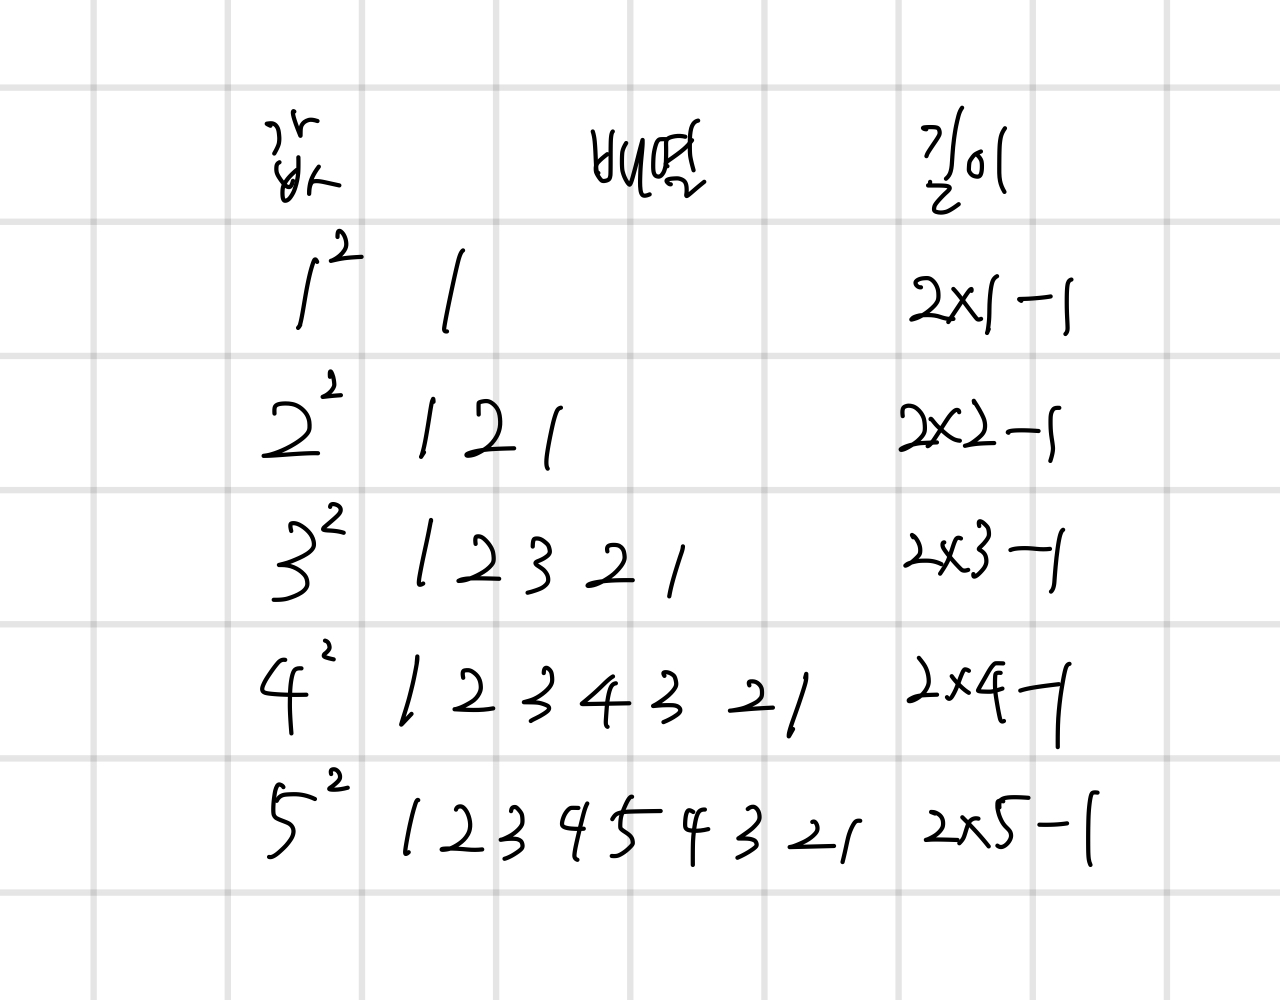 값 배열 길이
1² 1 2×1-1
2² 1 2 1 2×2-1
3² 1 2 3 2 1 2×3-1
4² 1 2 3 4 3 2 1 2×4-1
5² 1 2 3 4 5 4 3 2 1 2×5-1